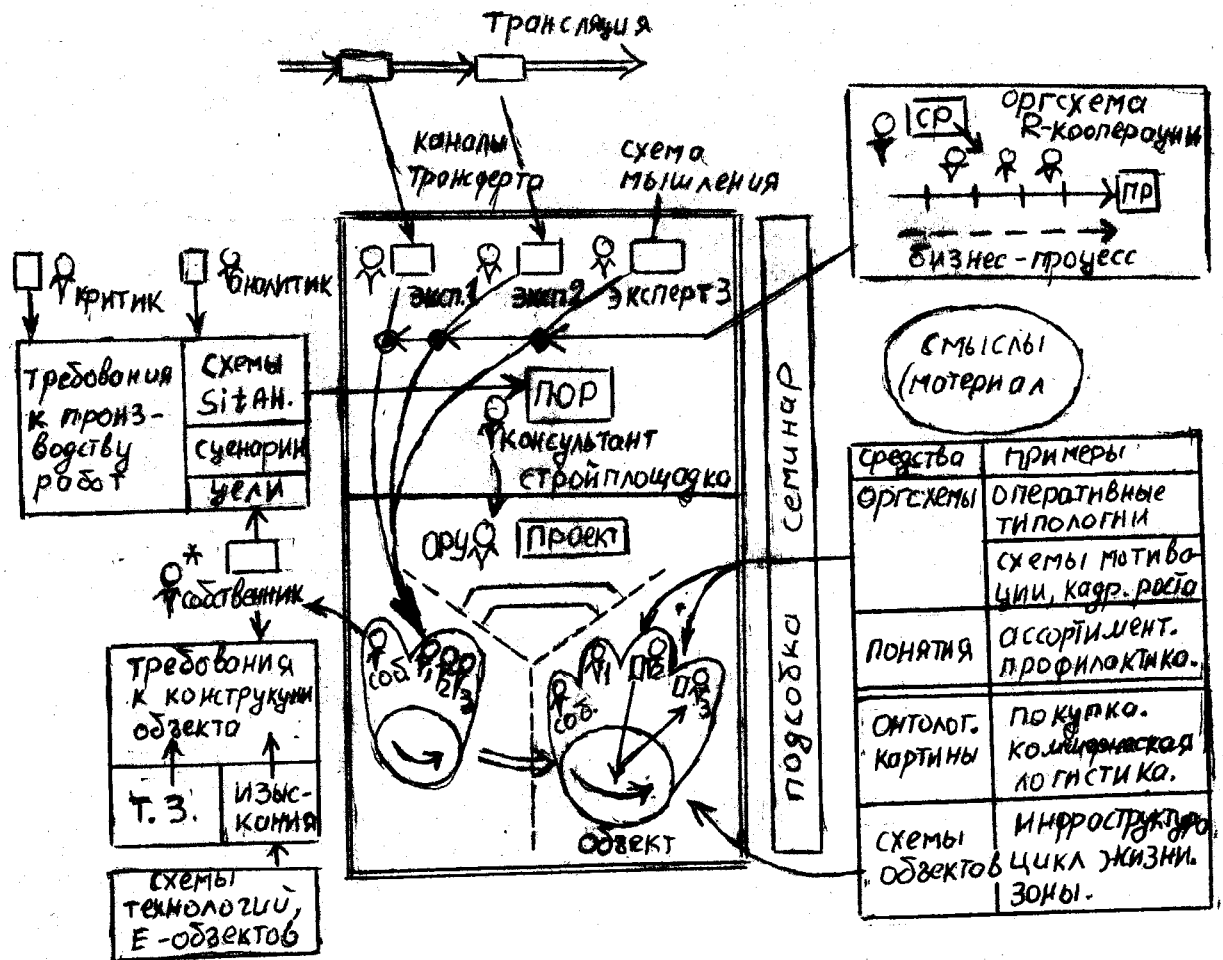 трансляция
каналы
трансферта
схема
мышления
оргсхема
R-кооперации
СР
ПР
бизнес-процесс
критик
аналитик
эксп.1
эксп2
эксперт3
требования
к произ-
водству
работ
схемы
SitАН.
сценарии
цели
ПОР
консультант
стройплощадка
ОРУ
Проект
*
собственник
требования
к конструкции
объекта
Т.З.
изыс-
кания
схемы
технологий,
Е-объектов
соб.
1
2
3
соб.
П1
П2
П3
Объект
подсобка семинар
смыслы
(материал
средства
примеры
оргсхемы
оперативные
типологии
схемы мотива-
ции, кадр. роста
понятия
ассортимент.
профилактика.
онтолог.
картины
покупка.
коммерческая
логистика.
схемы
объектов
инфраструктура
цикл жизни.
зоны.